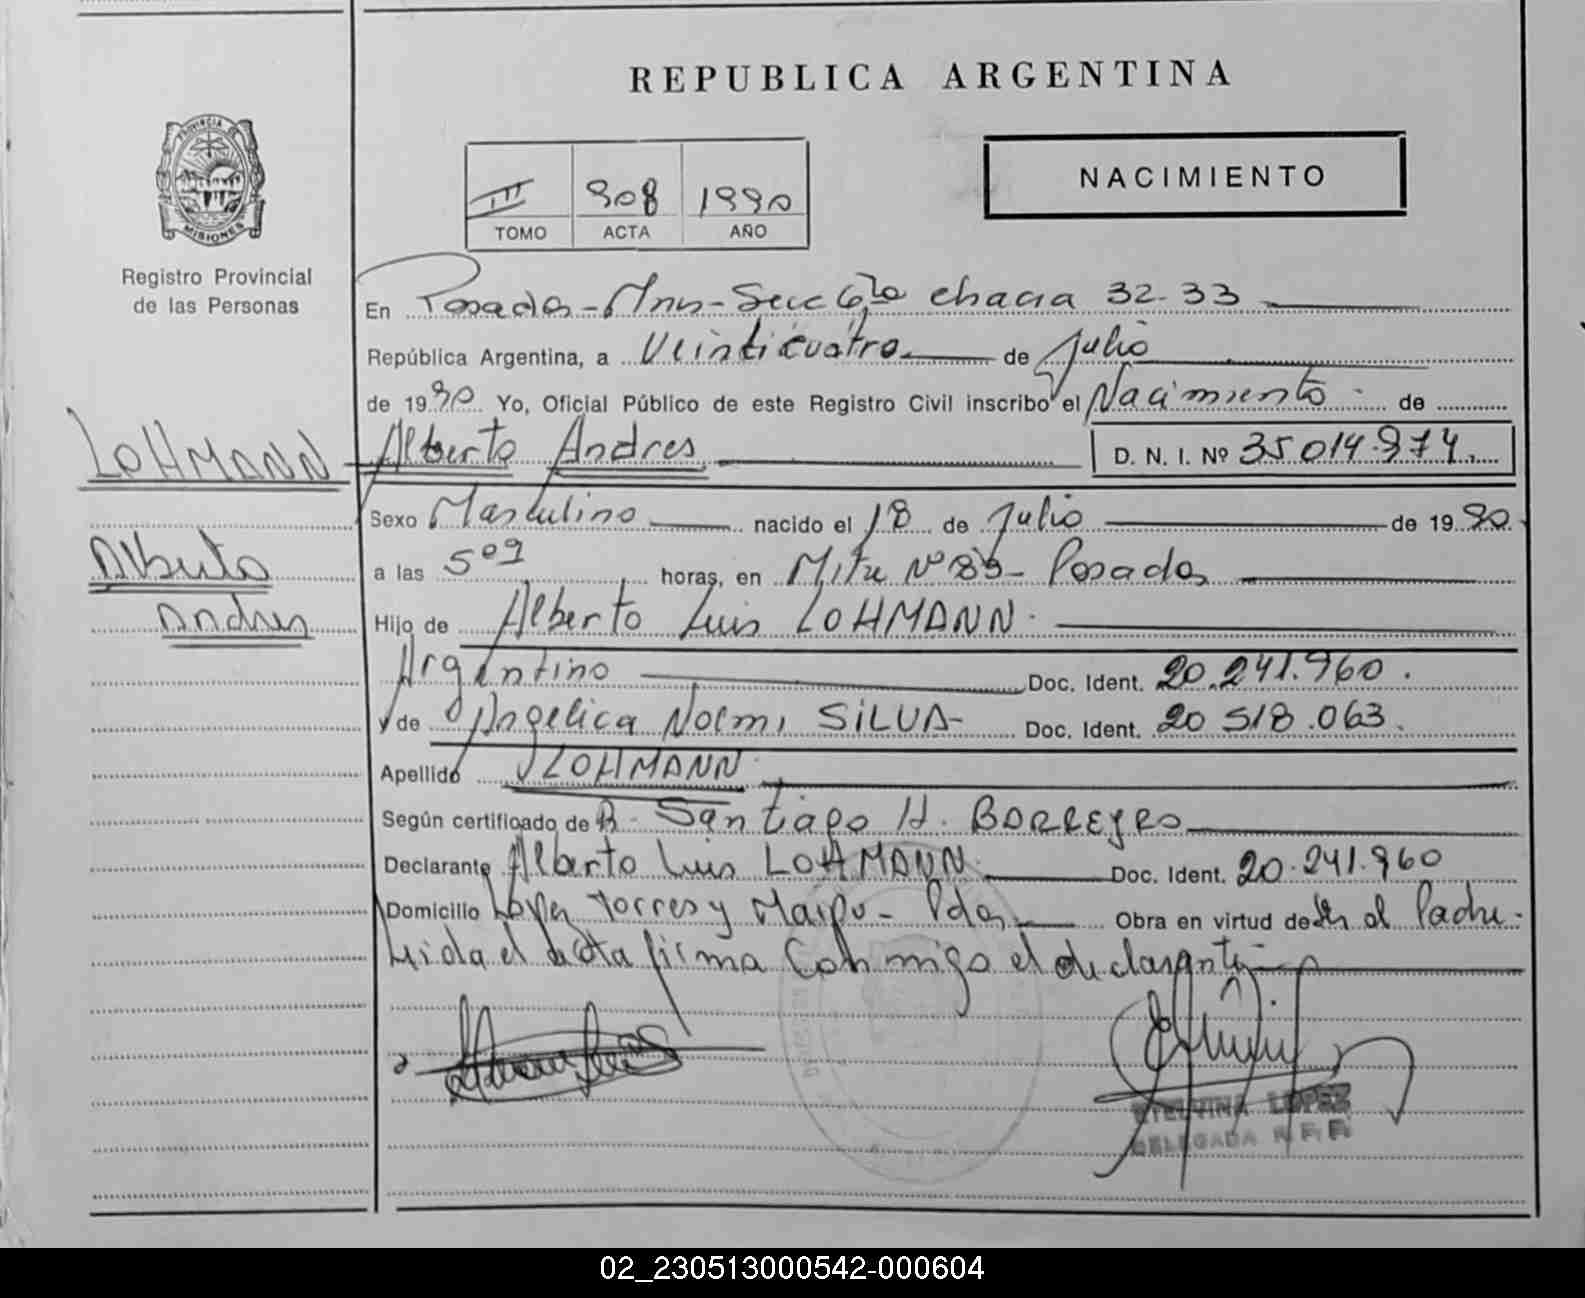 REPUBLICA ARGENTINA
PROVINCIA DE
MISIONES
Registro Provincial
de las Personas
III 908 1990
TOMO ACTA AÑO
NACIMIENTO
En Posadas - Mns - Secc 6ta chacra 32-33
República Argentina, a Veinticuatro de Julio
de 1990 Yo, Oficial Público de este Registro Civil inscribo el Nacimiento de
LOHMANN
Alberto Andres D. N. I. Nº 35.014.974.
Sexo Masculino nacido el 18 de Julio de 1990.
Alberto
Andres
a las 5 09 horas, en Mitre Nº 89 - Posadas
Hijo de Alberto Luis LOHMANN.
Argentino Doc. Ident. 20.241.960.
y de Angelica Noemi SILVA - Doc. Ident. 20 518.063.
Apellido LOHMANN
Según certificado de Santiago H. BORREYRO
Declarante Alberto Luis LOHMANN. Doc. Ident. 20.241.960
Domicilio Lopez Torres y Maipu - Pdas. Obra en virtud de ser el Padre.
Leida el acta firma Conmigo el declarante
ETELVINA LOPEZ
DELEGADA
02_230513000542-000604